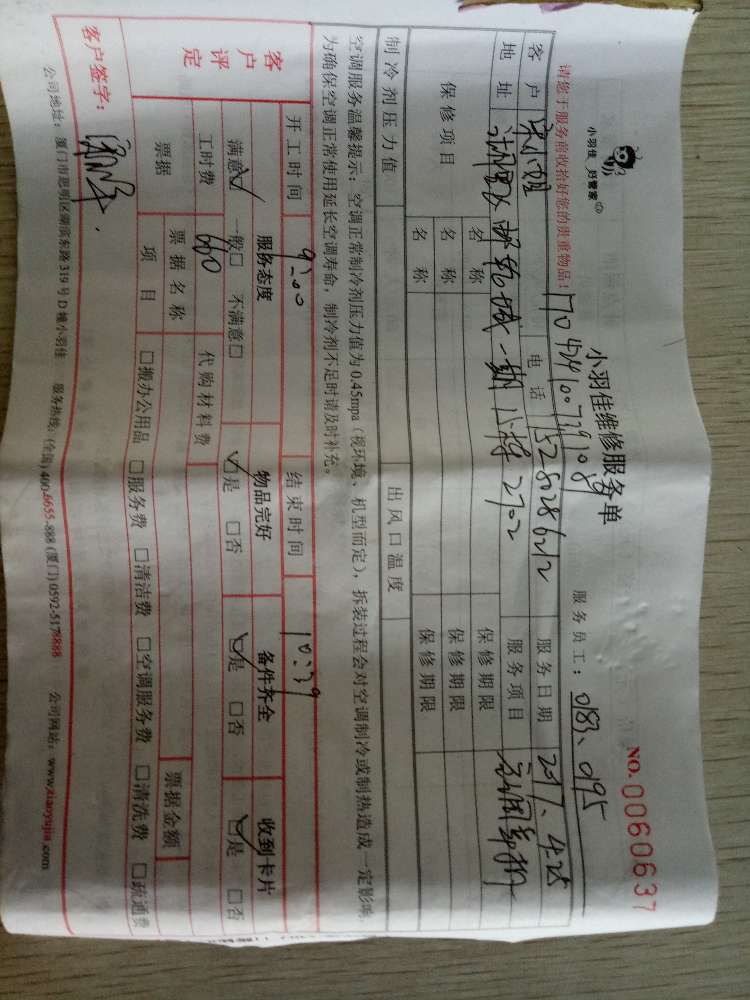 小羽佳 好管家
小羽佳维修服务单
NO. 0060637
请您于服务前收拾好您的贵重物品!
服务员工: 0183、0195
客户 电话 服务日期 2017、4.25
地址 一期 2702 服务项目
保修项目 名称 保修期限
名称 保修期限
名称 保修期限
制冷剂压力值 出风口温度
空调服务温馨提示:空调正常制冷剂压力值为0.45mpa(视环境、机型而定),拆装过程会对空调制冷或制热造成一定影响,
为确保空调正常使用延长空调寿命,制冷剂不足时请及时补充。
开工时间 9:00 结束时间 10:39
客户评定 服务态度 物品完好 备件齐全 收到卡片
满意☑ 一般□ 不满意□ ☑是 □否 ☑是 □否 ☑是 □否
工时费 660 代购材料费
票据 票据名称 票据金额
项目 □搬办公用品 □服务费 □清洁费 □空调服务费 □清洗费 □疏通费
客户签字:
公司地址:厦门市思明区湖滨东路319号D幢小羽佳 服务热线:(全国)400-6655-888 (厦门)0592-5178888 公司网站:www.xiaoyujia.com